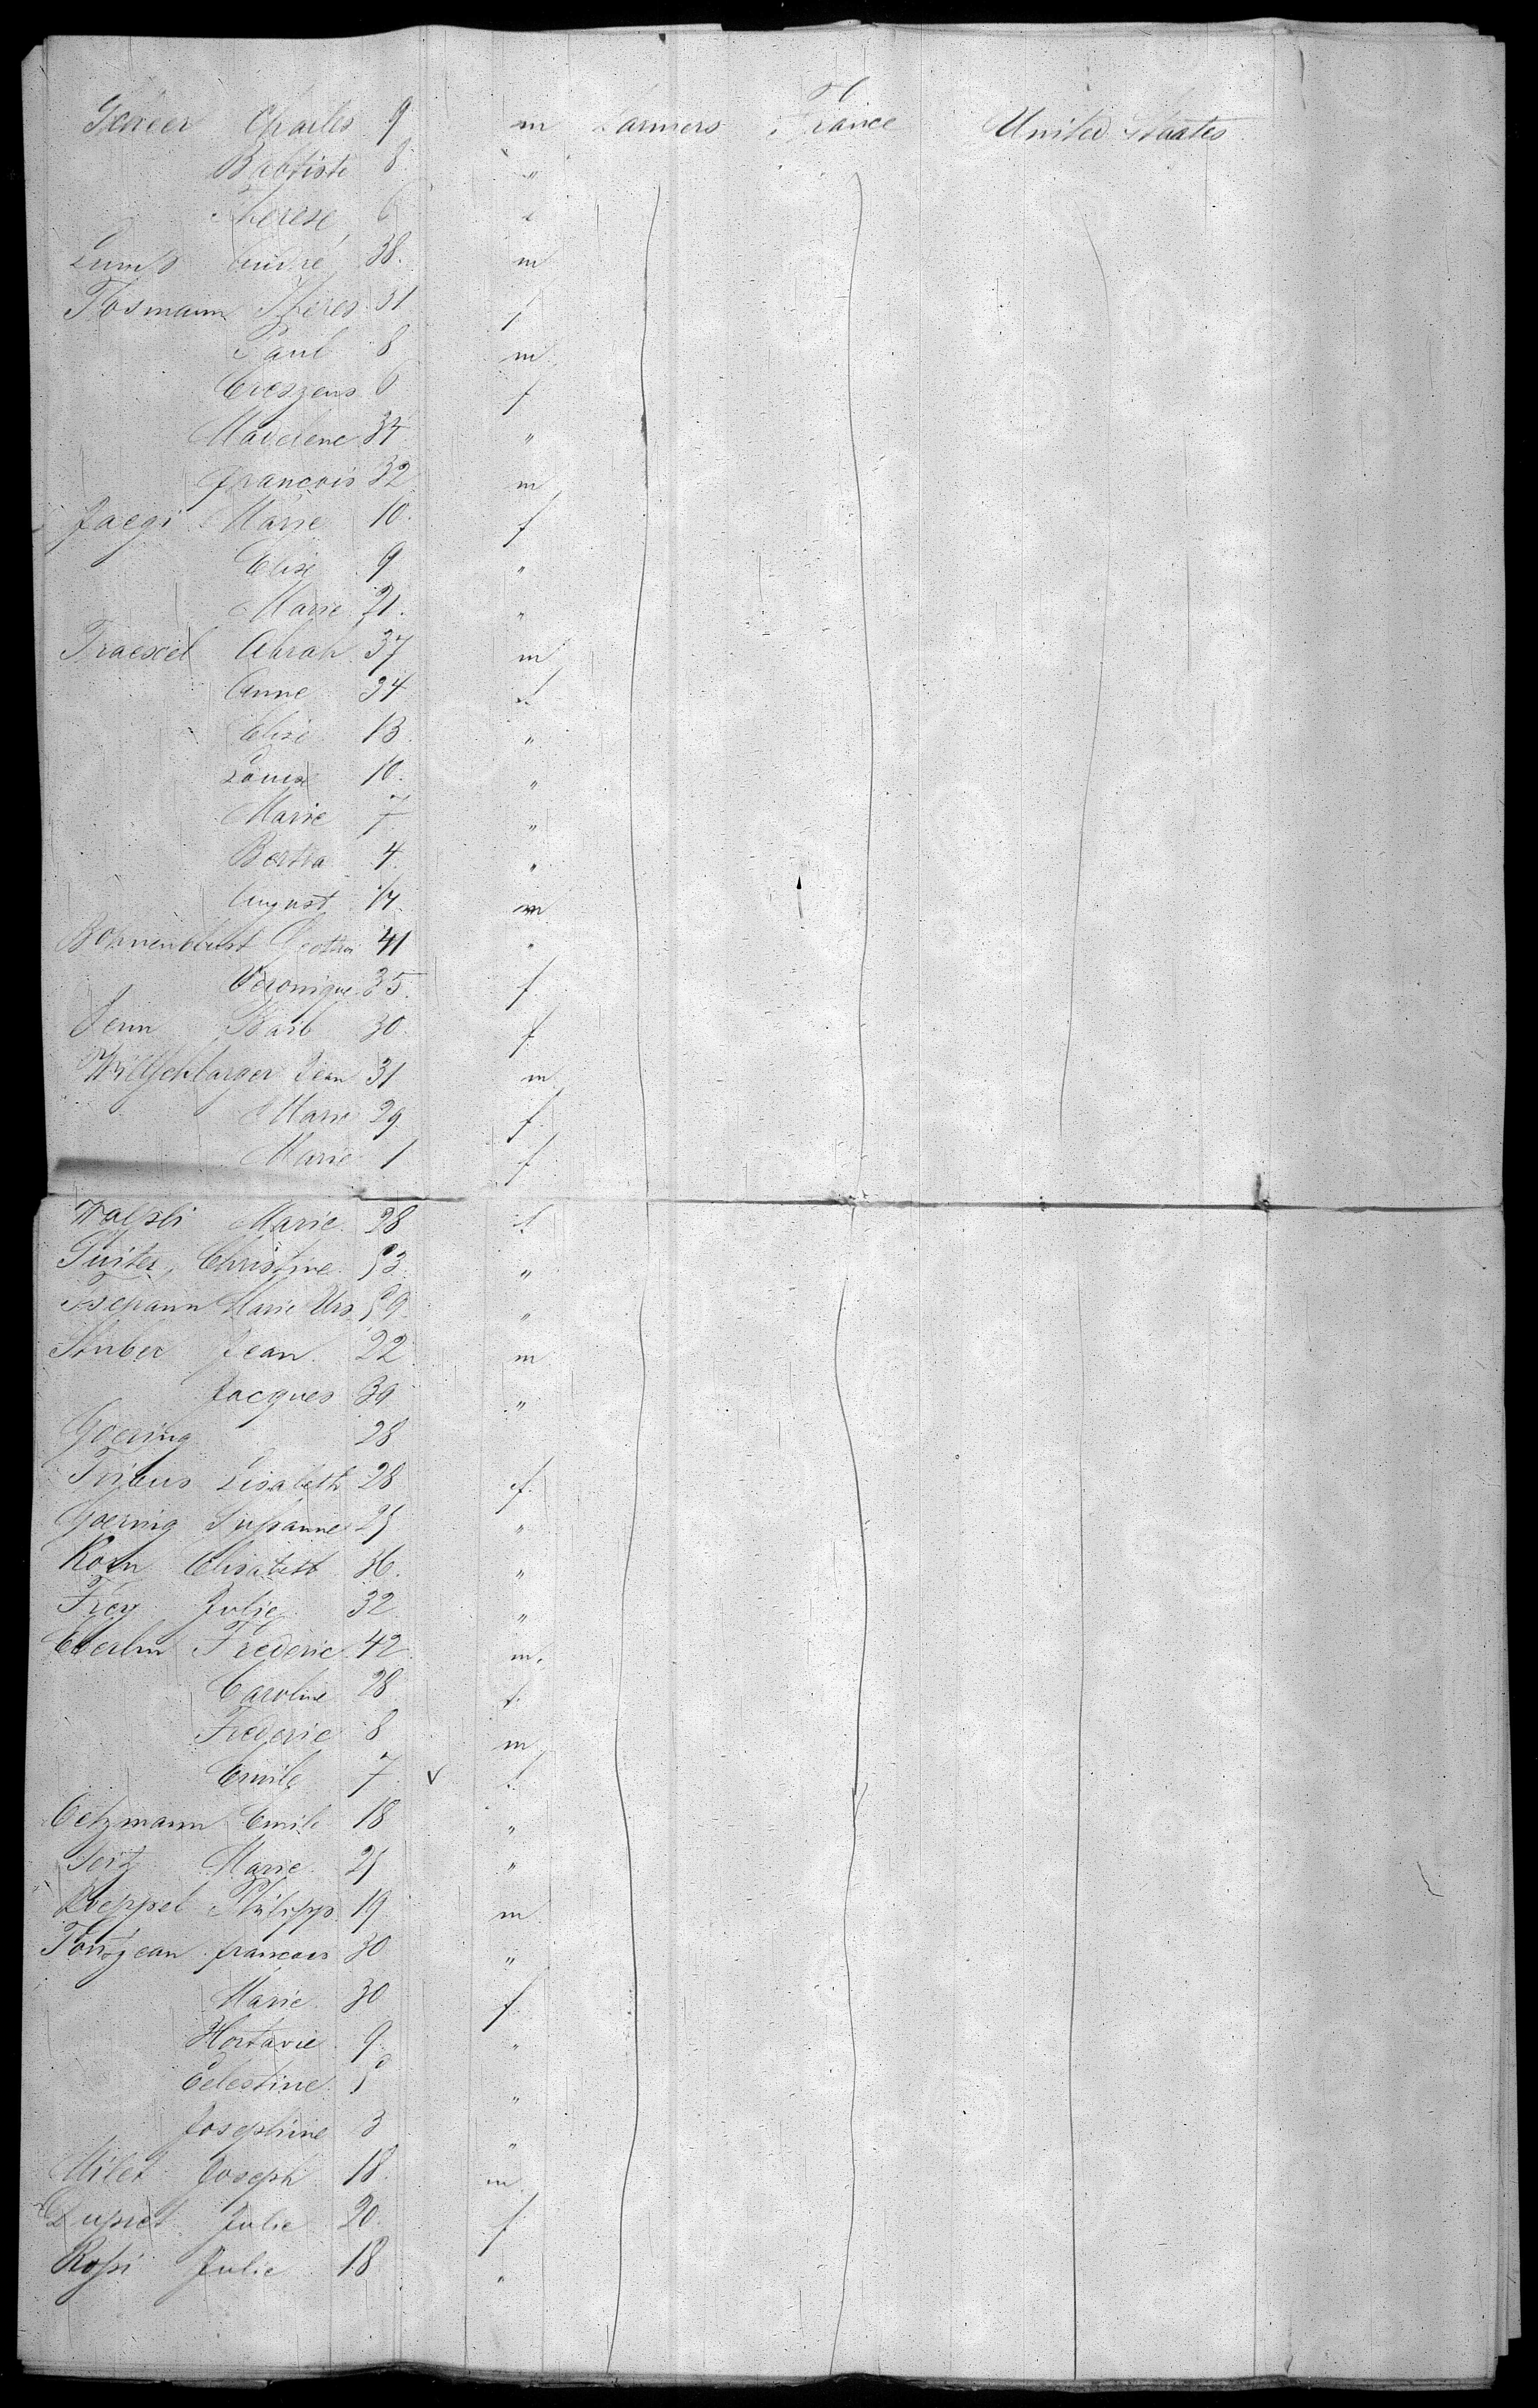 Charles 9 m Farmers France United States
Baptiste 8 "
Therese 6
André 38 m
Tosmann Theres 31 f
Paul 8 m
Creszens 6 f
Madelene 34 "
francois 32 m
Jaegi Marie 10 f
Elise 9 "
Marie 21 "
Traexel Abrah 37 m
Anne 34 f
Elise 13 "
Louise 10 "
Marie 7 "
Berta 4 "
August 14 m
Bonnenblust 41 "
Veronique 35 f
Jenn Barb 30 f
Jean 31 m
Marie 29 f
Marie 1 f
Marie 28 f
Christine 53 "
Marie Urs 59 "
Stuber Jean 22 m
Jacques 39 "
Goering 28
Tribus Lisabeth 28 f
Goering Susanne 25 "
Korn Elisabeth 36 "
Frey Julie 32 "
Eberlin Frederic 42 m
Caroline 28 f
Frederic 8 m
Emile 7 v f
Oetzmann Emile 18 "
Seitz Marie 25 "
Philipp 19 m
francois 30 "
Marie 30 f
Hortavie 9 "
Celestine 5 "
Josephine 3 "
Milet Joseph 18 m
Dupret Julie 20 f
Rossi Julie 18 "